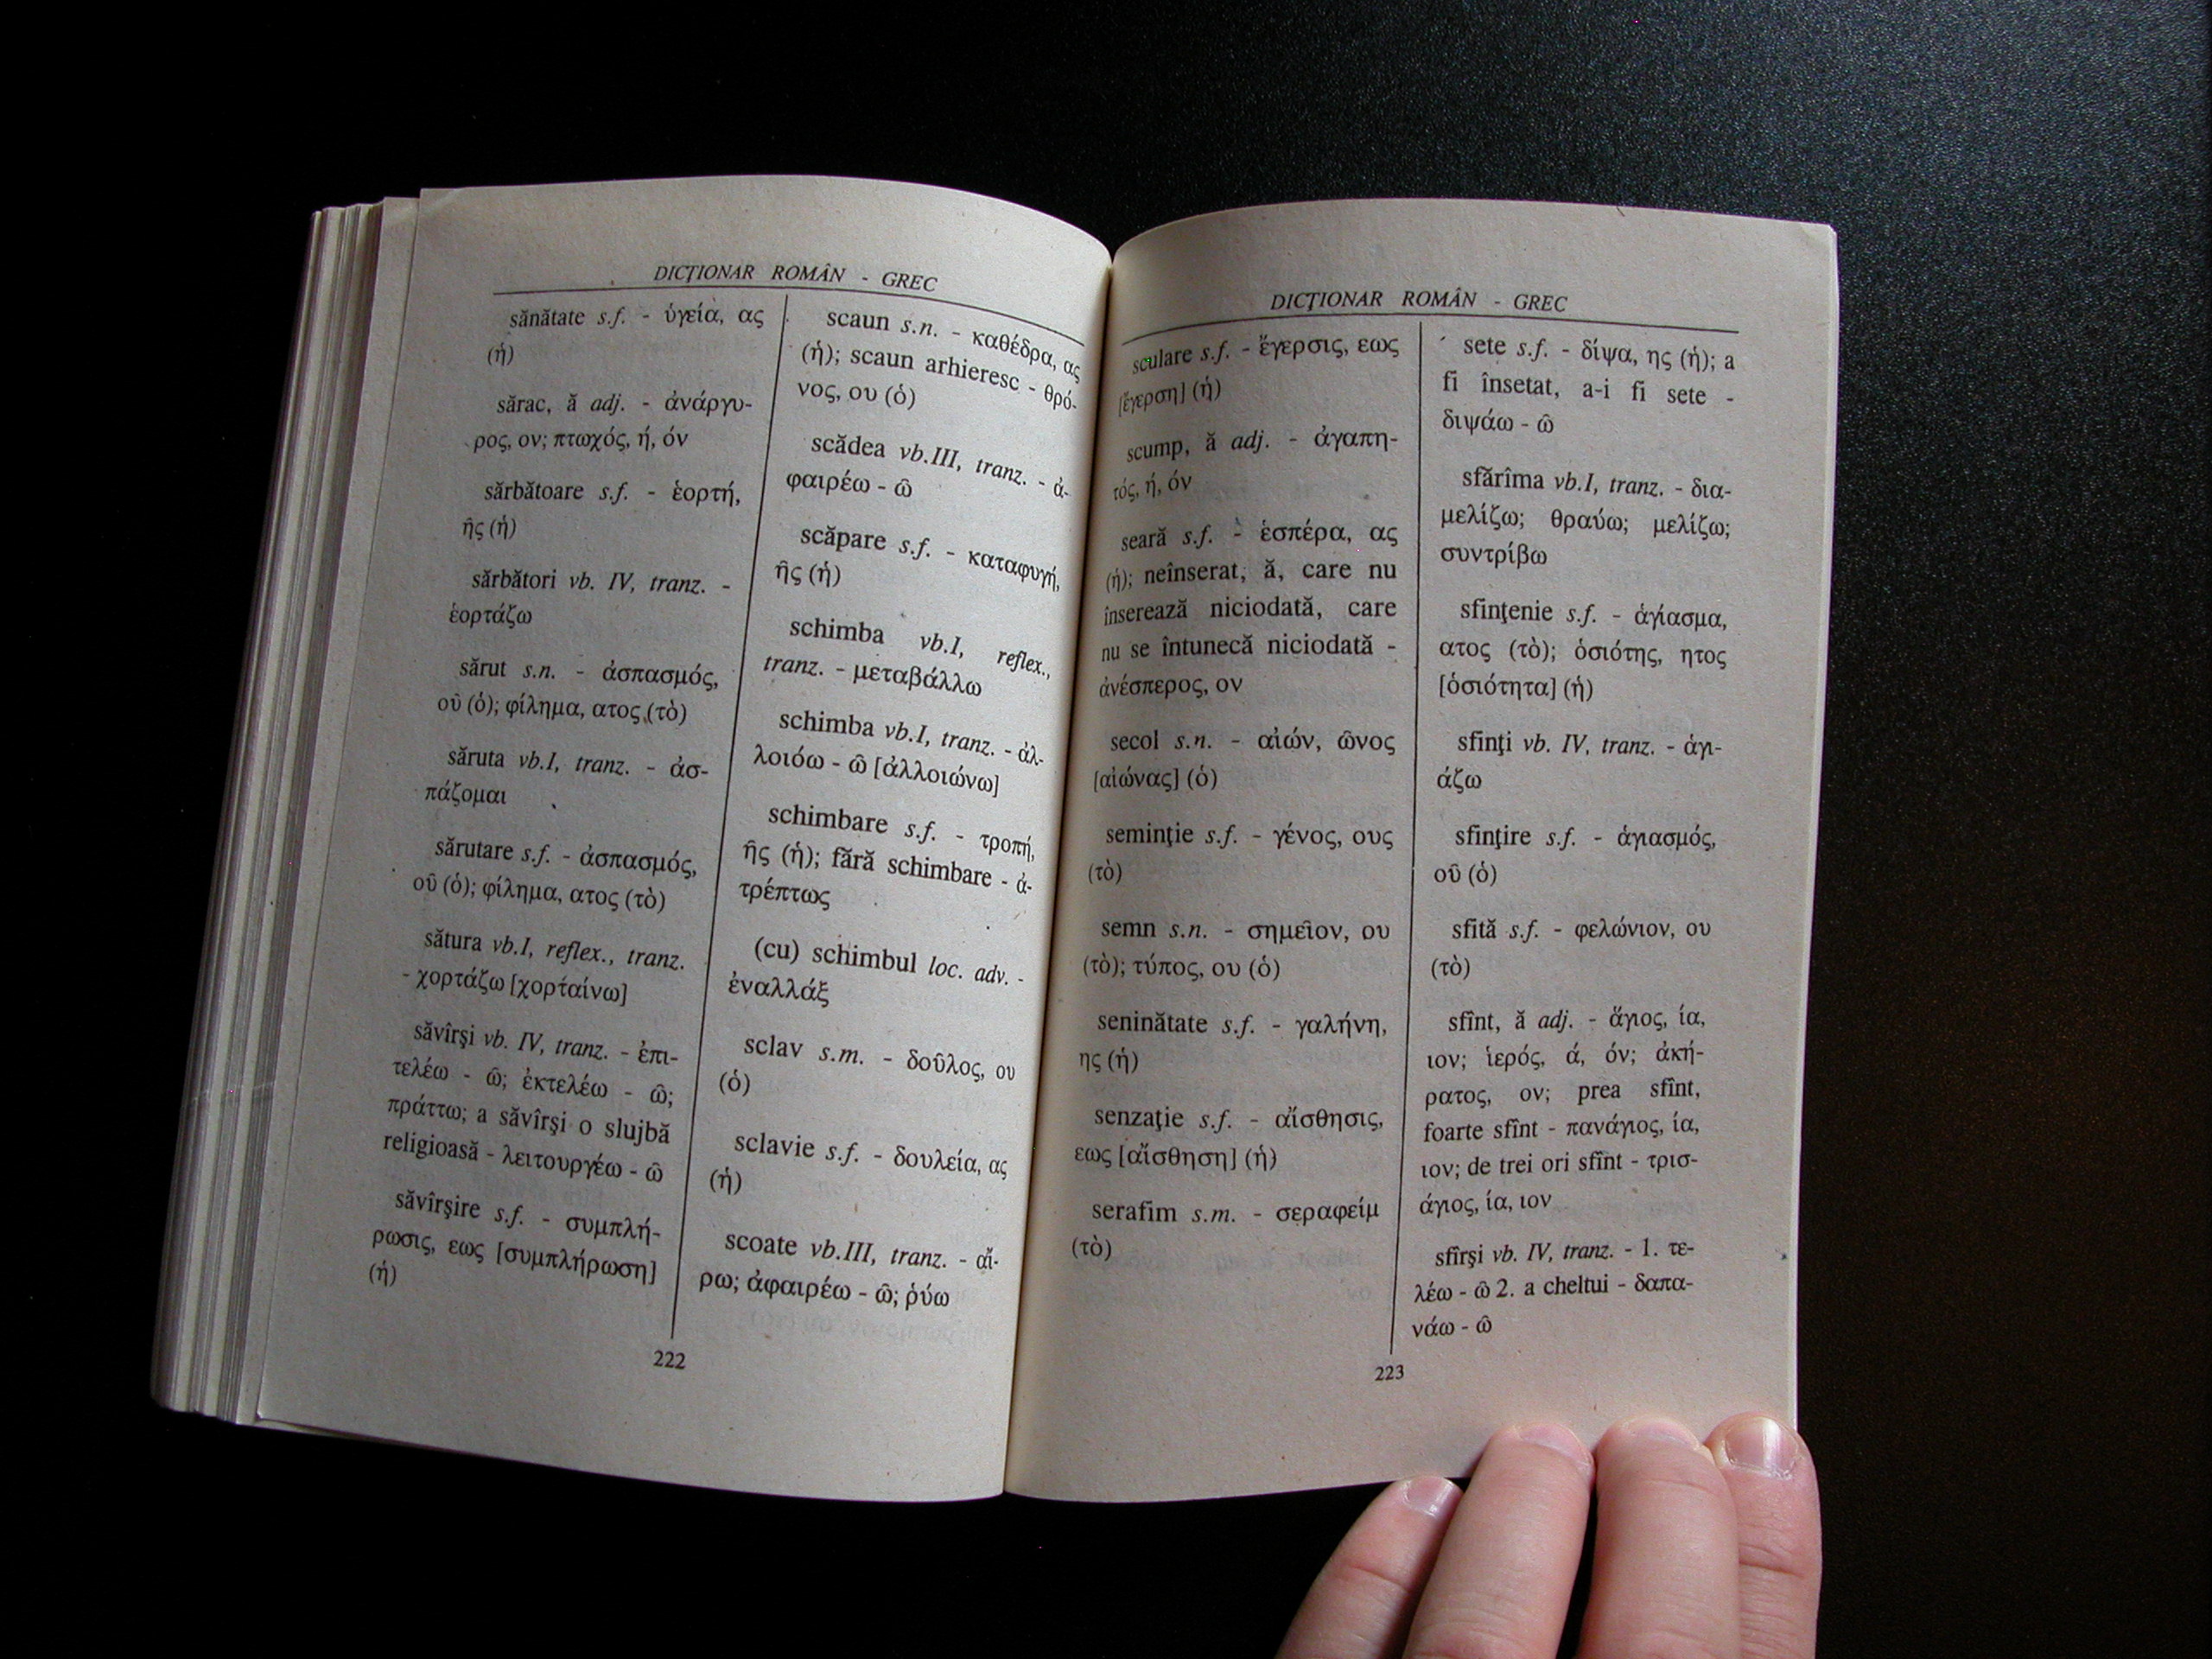 DICŢIONAR ROMÂN - GREC
sănătate s.f. - ὑγεία, ας
(ἡ)
sărac, ă adj. - ἀνάργυ-
ρος, ον; πτωχός, ή, όν
sărbătoare s.f. - ἑορτή,
ῆς (ἡ)
sărbători vb. IV, tranz. -
ἑορτάζω
sărut s.n. - ἀσπασμός,
οῦ (ὁ); φίλημα, ατος (τὸ)
săruta vb.I, tranz. - ἀσ-
πάζομαι
sărutare s.f. - ἀσπασμός,
οῦ (ὁ); φίλημα, ατος (τὸ)
sătura vb.I, reflex., tranz.
- χορτάζω [χορταίνω]
săvîrşi vb. IV, tranz. - ἐπι-
τελέω - ῶ; ἐκτελέω - ῶ;
πράττω; a săvîrşi o slujbă
religioasă - λειτουργέω - ῶ
săvîrşire s.f. - συμπλή-
ρωσις, εως [συμπλήρωση]
(ἡ)
scaun s.n. - καθέδρα, ας
(ἡ); scaun arhieresc - θρό-
νος, ου (ὁ)
scădea vb.III, tranz. - ἀ-
φαιρέω - ῶ
scăpare s.f. - καταφυγή,
ῆς (ἡ)
schimba vb.I, reflex.,
tranz. - μεταβάλλω
schimba vb.I, tranz. - ἀλ-
λοιόω - ῶ [ἀλλοιώνω]
schimbare s.f. - τροπή,
ῆς (ἡ); fără schimbare - ἀ-
τρέπτως
(cu) schimbul loc. adv. -
ἐναλλάξ
sclav s.m. - δοῦλος, ου
(ὁ)
sclavie s.f. - δουλεία, ας
(ἡ)
scoate vb.III, tranz. - αἴ-
ρω; ἀφαιρέω - ῶ; ῥύω
222
DICŢIONAR ROMÂN - GREC
sculare s.f. - ἔγερσις, εως
[ἔγερση] (ἡ)
scump, ă adj. - ἀγαπη-
τός, ή, όν
seară s.f. - ἑσπέρα, ας
(ἡ); neînserat, ă, care nu
înserează niciodată, care
nu se întunecă niciodată -
ἀνέσπερος, ον
secol s.n. - αἰών, ῶνος
[αἰώνας] (ὁ)
seminţie s.f. - γένος, ους
(τὸ)
semn s.n. - σημεῖον, ου
(τὸ); τύπος, ου (ὁ)
seninătate s.f. - γαλήνη,
ης (ἡ)
senzaţie s.f. - αἴσθησις,
εως [αἴσθηση] (ἡ)
serafim s.m. - σεραφείμ
(τὸ)
sete s.f. - δίψα, ης (ἡ); a
fi însetat, a-i fi sete -
διψάω - ῶ
sfărîma vb.I, tranz. - δια-
μελίζω; θραύω; μελίζω;
συντρίβω
sfinţenie s.f. - ἁγίασμα,
ατος (τὸ); ὁσιότης, ητος
[ὁσιότητα] (ἡ)
sfinţi vb. IV, tranz. - ἁγι-
άζω
sfinţire s.f. - ἁγιασμός,
οῦ (ὁ)
sfită s.f. - φελώνιον, ου
(τὸ)
sfînt, ă adj. - ἅγιος, ία,
ιον; ἱερός, ά, όν; ἀκή-
ρατος, ον; prea sfînt,
foarte sfînt - πανάγιος, ία,
ιον; de trei ori sfînt - τρισ-
άγιος, ία, ιον
sfîrşi vb. IV, tranz. - 1. τε-
λέω - ῶ 2. a cheltui - δαπα-
νάω - ῶ
223